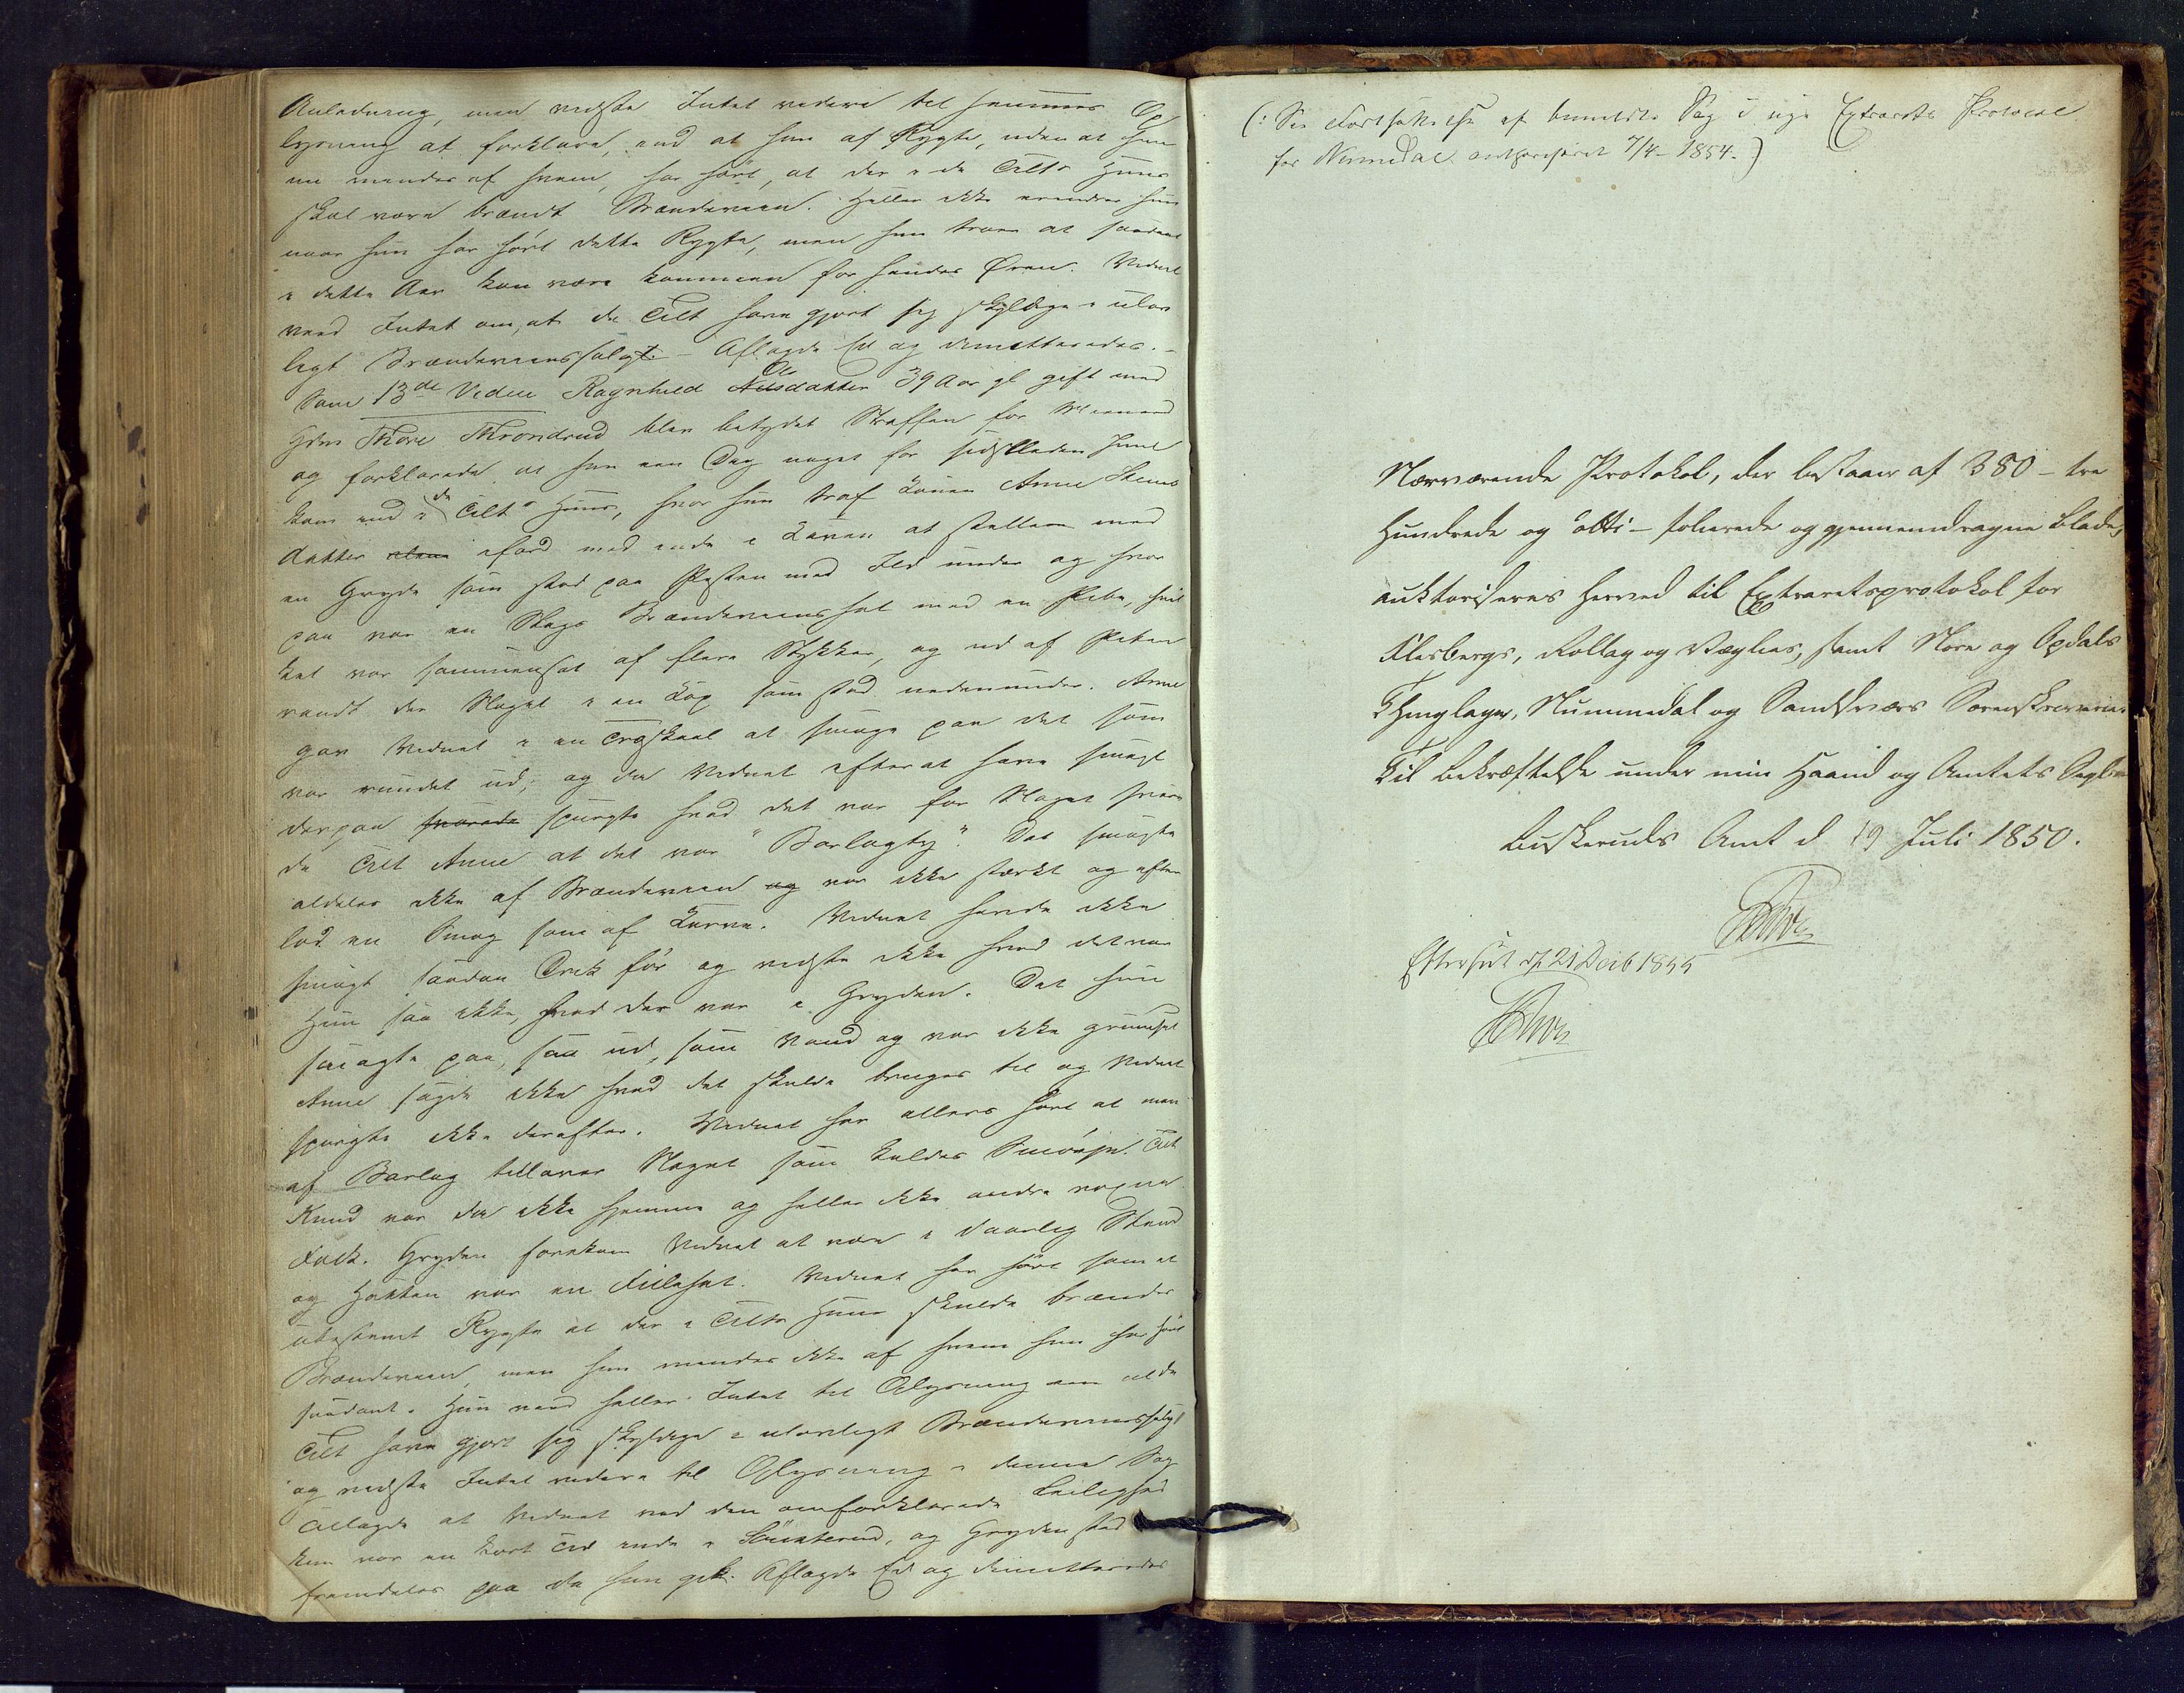 Anledning, men vidste Intet videre til sammes Op
lysning at forklare, end at hun af Rygte, uden at hun
nu mindes af hvem, har hørt, at der i de Tilts Huus
skal være brændt Brændeviin. Heller ikke erindrer hun
naar hun har hørt dette Rygte, men hun troer at saadant
i dette Aar kan være kommen for hendes Øren. Vidnet
veed Intet om, at de Tilt have gjort sig skyldige i ulov
ligt Brændeviinssalg. - Aflagde Ed og dimitteredes. -
Som 13de Vidne Ragnhild Nilsdatter Ols 39 Aar gl gift med
Gdm Thore Throndrud blev betydet Straffen for Meeneed
og forklarede, at hun een Dag noget før sidstleden Juul
kom ind i de Tilts Huus, hvor hun traf Konen Anne Steens
datter alene ifærd med inde i Koven at stelle med
en Gryde som stod paa Peisen med Ild under og hvor
paa var en Slags Brændeviinshat med en Pibe, hvil
ket var sammensat af flere Stykker, og ud af Piben
randt der Noget i en Kop som stod nedenunder. Anne
gav Vidnet i en Træskaal at smage paa det som
var rundet ud; og da Vidnet efterat have smagt
derpaa svarede spurgte hvad det var for Noget svare
de Tilt Anne at det var "Barlagty". Det smagte
aldeles ikke af Brændeviin og var ikke stærkt og efter
lod en Smag som af Karve. Vidnet havde ikke
smagt saadan Drik før og vidste ikke hvad det var
Hun saa ikke, hvad der var i Gryden. Det hun
smagte paa, saa ud, som Vand og var ikke grumset
Anne sagde ikke hvad det skulde bruges til og Vidnet
spurgte ikke derefter. Vidnet har ellers hørt at man
af Barlag tillaver Noget som kaldes Tilt
Knud var da ikke hjemme og heller ikke andre voxne
Folk. Gryden forekom Vidnet at være i daarlig Stand
og Hatten var en Fillehat. Vidnet har hørt som et
ubestemt Rygte at der i Tilts Huus skulde brændes
Brændeviin, men hun mindes ikke af hvem hun har hørt
saadant. Hun veed heller Intet til Oplysning om at de
Tilt have gjort sig skyldige i ulovligt Brændeviinssalg
og vidste Intet videre til Oplysning i denne Sag
Tillagde at Vidnet ved den omforklarede Leilighed
kun var en kort Tid inde i og Gryden stod
fremdeles paa da hun gik. Aflagde Ed og dimitteredes
(: See Fortsættelse af bemeldte Sag i nye Extrarets Protocol
for Numedal authoriseret 7/4-1854.)
Nærværende Protokol, der bestaaer af 380 - tre
Hundrede og otti - folierede og gjennemdragne Blade,
auktoriseres herved til Extraretsprotokol for
Flesbergs, Rollag og Væglies, samt Nore og Opdals
Thinglager, Nummedal og Sandsværs Sorenskriverie.
Til Bekræftelse under min Haand og Amtets Segl.
Buskeruds Amt d 19 Juli 1850.
Efterseet d 21 Decb 1855